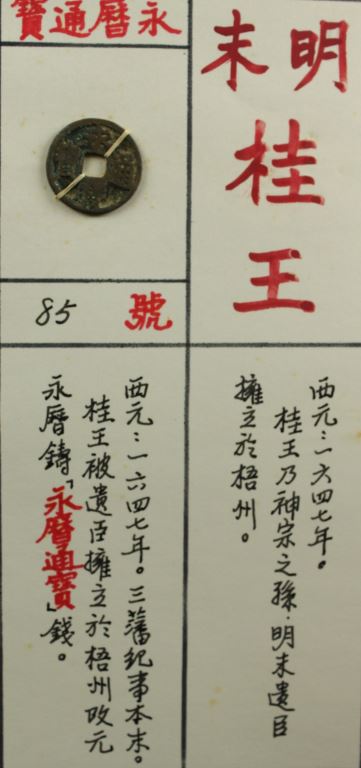 明末
桂王
西元：一六四七年。
桂王乃神宗之孫．明末遺臣
擁立於梧州。
永曆通寶
85 號
西元：一六四七年。三藩紀事本末。
桂王被遺臣擁立於梧州改元
永曆鑄「永曆通寶」錢。